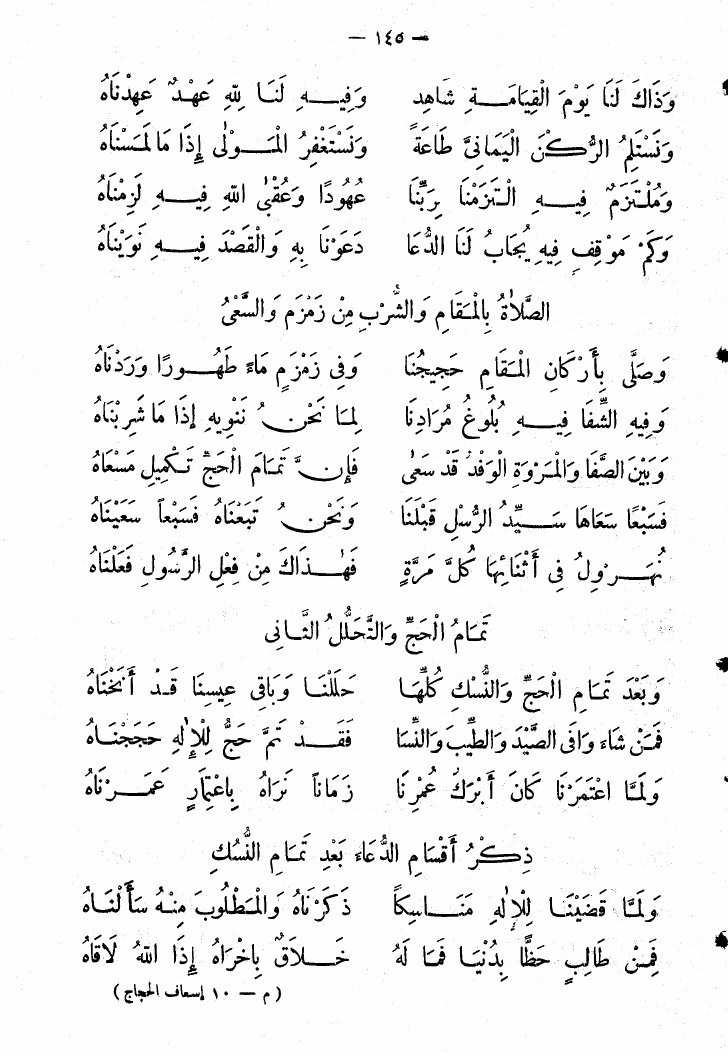 — ١٤٥ —
وَذَاكَ لَنَا يَوْمَ الْقِيَامَةِ شَاهِد وَفِيهِ لَنَا لِلهِ عَهْدٌ عَهِدْنَاهُ
وَنَسْتَلِمُ الرُّكْنَ الْيَمَانِيَّ طَاعَةً وَنَسْتَغْفِرُ الْمَوْلَى إِذَا مَا لَمَسْنَاهُ
وَمُلْتَزَمٌ فِيهِ الْتَزَمْنَا بِرَبِّنَا عُهُودًا وَعُقْبَى اللهِ فِيهِ لَزِمْنَاهُ
وَكَمْ مَوْقِفٍ فِيهِ يُجَابُ لَنَا الدُّعَا دَعَوْنَا بِهِ وَالْقَصْدَ فِيهِ نَوَيْنَاهُ
الصَّلَاةُ بِالْمَقَامِ وَالشُّرْبِ مِنْ زَمْزَم وَالسَّعْىُ
وَصَلَّى بِأَرْكَانِ الْمَقَامِ حَجِيجُنَا وَفِى زَمْزَمٍ مَاءً طَهُورًا وَرَدْنَاهُ
وَفِيهِ الشِّفَا فِيهِ بُلُوغُ مُرَادِنَا لِمَا نَحْنُ نَنْوِيهِ إِذَا مَا شَرِبْنَاهُ
وَبَيْنَ الصَّفَا وَالْمَرْوَةِ الْوَفْدُ قَدْ سَعَى فَإِنَّ تَمَامَ الْحَجِّ تَكْمِيلُ مَسْعَاهُ
فَسَبْعًا سَعَاهَا سَيِّدُ الرُّسْلِ قَبْلَنَا وَنَحْنُ تَبَعْنَاهُ فَسَبْعاً سَعَيْنَاهُ
نُهَرْوِلُ فِى أَثْنَائِهَا كُلَّ مَرَّةٍ فَهٰذَاكَ مِنْ فِعْلِ الرَّسُولِ فَعَلْنَاهُ
تَمَامُ الْحَجِّ وَالتَّحَلُّلُ الثَّانِى
وَبَعْدَ تَمَامِ الْحَجِّ وَالنُّسْكِ كُلِّهَا حَلَلْنَا وَبَاقِى عِيسِنَا قَدْ أَنَخْنَاهُ
فَمَنْ شَاءَ وَافَى الصَّيْدَ وَالطِّيبَ وَالنِّسَا فَقَدْ تَمَّ حَجٌّ لِلْإِلٰهِ حَجَجْنَاهُ
وَلَمَّا اعْتَمَرْنَا كَانَ أَبْرَكَ عُمْرِنَا زَمَاناً نَرَاهُ بِاعْتِمَارٍ عَمَرْنَاهُ
ذِكْرُ أَقْسَامِ الدُّعَاءَ بَعْدِ تَمَامِ النُّسُكِ
وَلَمَّا قَضَيْنَا لِلْإِلٰهِ مَنَاسِكاً ذَكَرْنَاهُ وَالْمَطْلُوبَ مِنْهُ سَأَلْنَاهُ
فَمِنْ طَالِبٍ حَظًّا بِدُنْيَا فَمَا لَهُ خَلَاقٌ بِاخْرَاهُ إِذَا اللهُ لَاقَاهُ
( م — ١٠ إسعاف الحجاج )